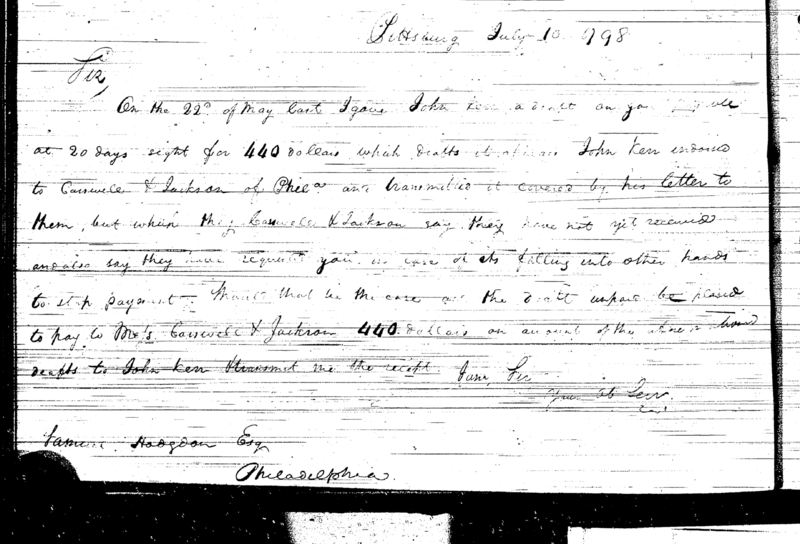 Pittsburg July 10 1798
Sir,
On the 22d of May last I gave John Ker a draft on you
at 20 days sight for 440 dollars which drafts it appears John Ker indorsed
to Casswell & Jackson of Phila and transmitted it covered by his letter to
them, but which they Casswell & Jackson say they have not yet received
and also say they have requested you in case of its falling into other hands
to stop payment. Should that be the case and the draft unpaid be pleased
to pay to Mess Casswell & Jackson 440 dollars on account of the
drafts to John Ker & transmit me the receipt I am, Sir
Your Ob Serv
Samuel Hodgdon Esq
Philadelphia